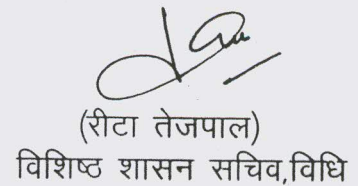 (रीटा तेजपाल)
विशिष्ठ शासन सचिव,विधि